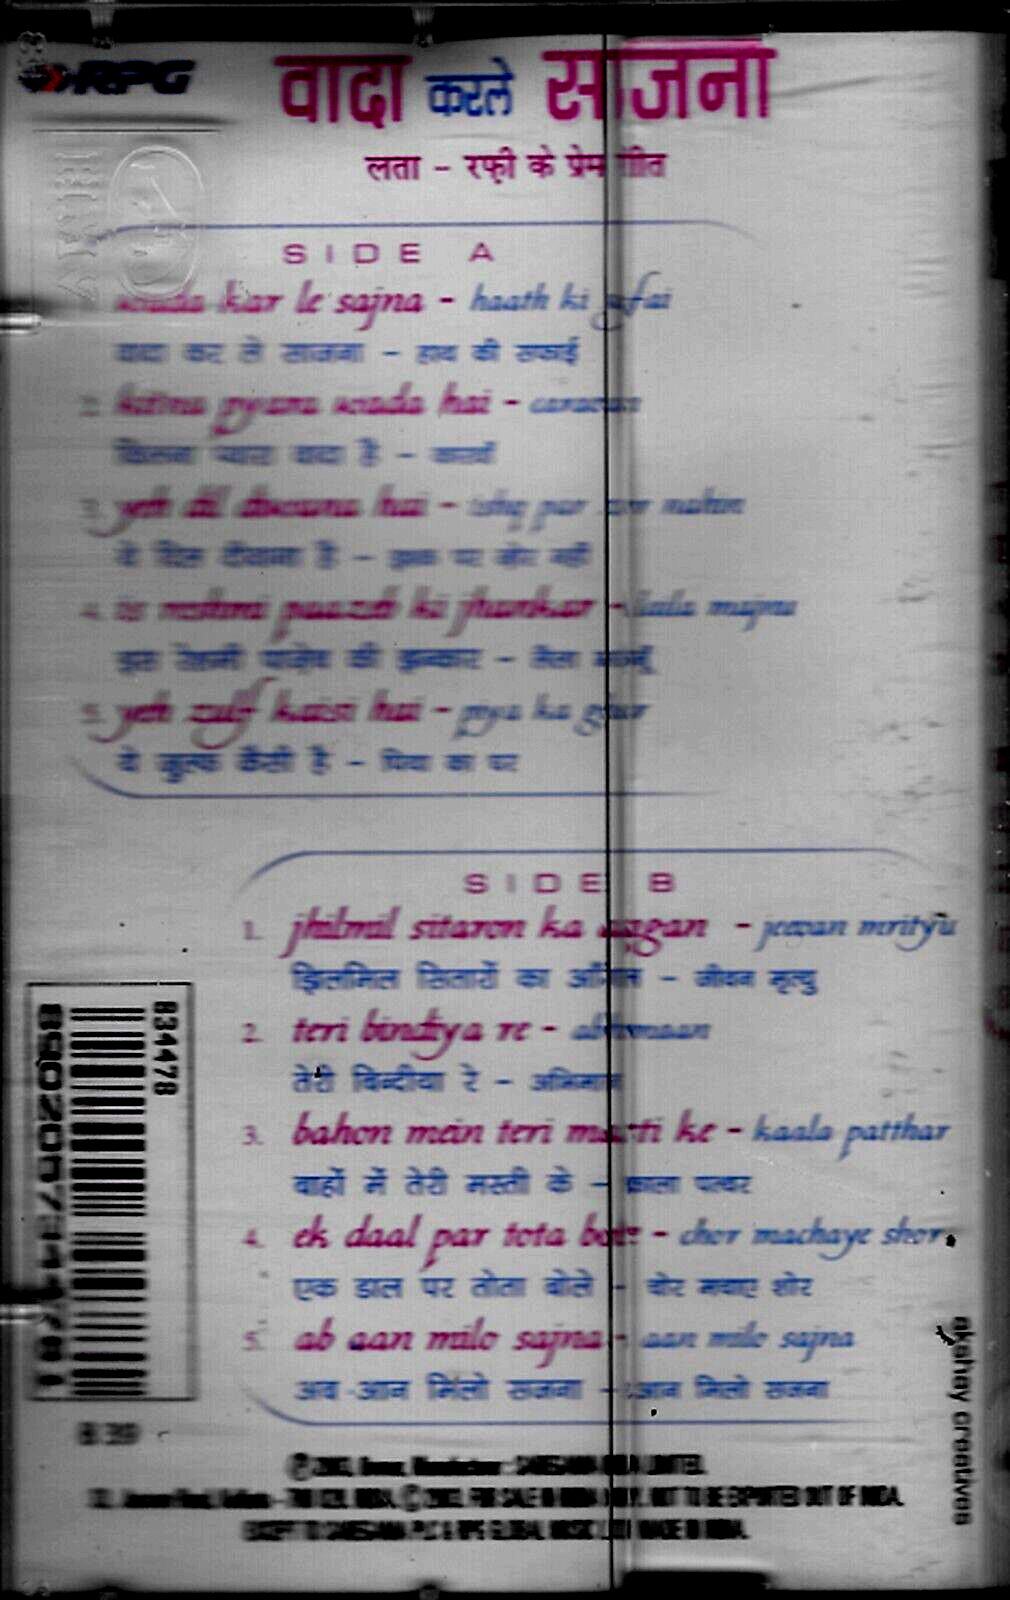 RPG
वादा करले साजना
लता - रफ़ी के प्रेम गीत
SIDE A
wada kar le sajna - haath ki safai
वादा कर ले साजना - हाथ की सफाई
2. kitna pyara wada hai - caravan
कितना प्यारा वादा है - कारवाँ
3. yeh dil diwana hai - ishq par zor nahin
ये दिल दीवाना है - इश्क पर ज़ोर नहीं
4. is reshmi paazeb ki jhankar - laila majnu
इस रेशमी पाज़ेब की झन्कार - लैला मजनूँ
5. yeh zulf kaisi hai - piya ka ghar
ये जुल्फ कैसी है - पिया का घर
SIDE B
1. jhilmil sitaron ka aagan - jeevan mrityu
झिलमिल सितारों का आँगन - जीवन मृत्यु
2. teri bindiya re - abhimaan
तेरी बिन्दीया रे - अभिमान
3. bahon mein teri masti ke - kaala patthar
बाहों में तेरी मस्ती के - काला पत्थर
4. ek daal par tota bole - chor machaye shor
एक डाल पर तोता बोले - चोर मचाए शोर
5. ab aan milo sajna - aan milo sajna
अब आन मिलो सजना - आन मिलो सजना
834478
akshay creatives
LIMITED.
FOR SALE IN INDIA ONLY. NOT TO BE EXPORTED OUT OF INDIA.
EXCEPT TO SAREGAMA PLC & RPG GLOBAL MUSIC MADE IN INDIA.